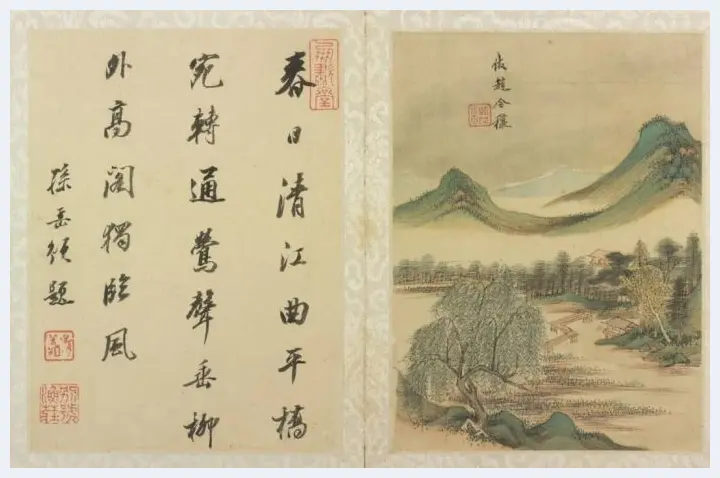 春日清江曲平橋
宛轉通鶯聲垂柳
外高閣獨臨風
孫岳頒題
倣趙令穰